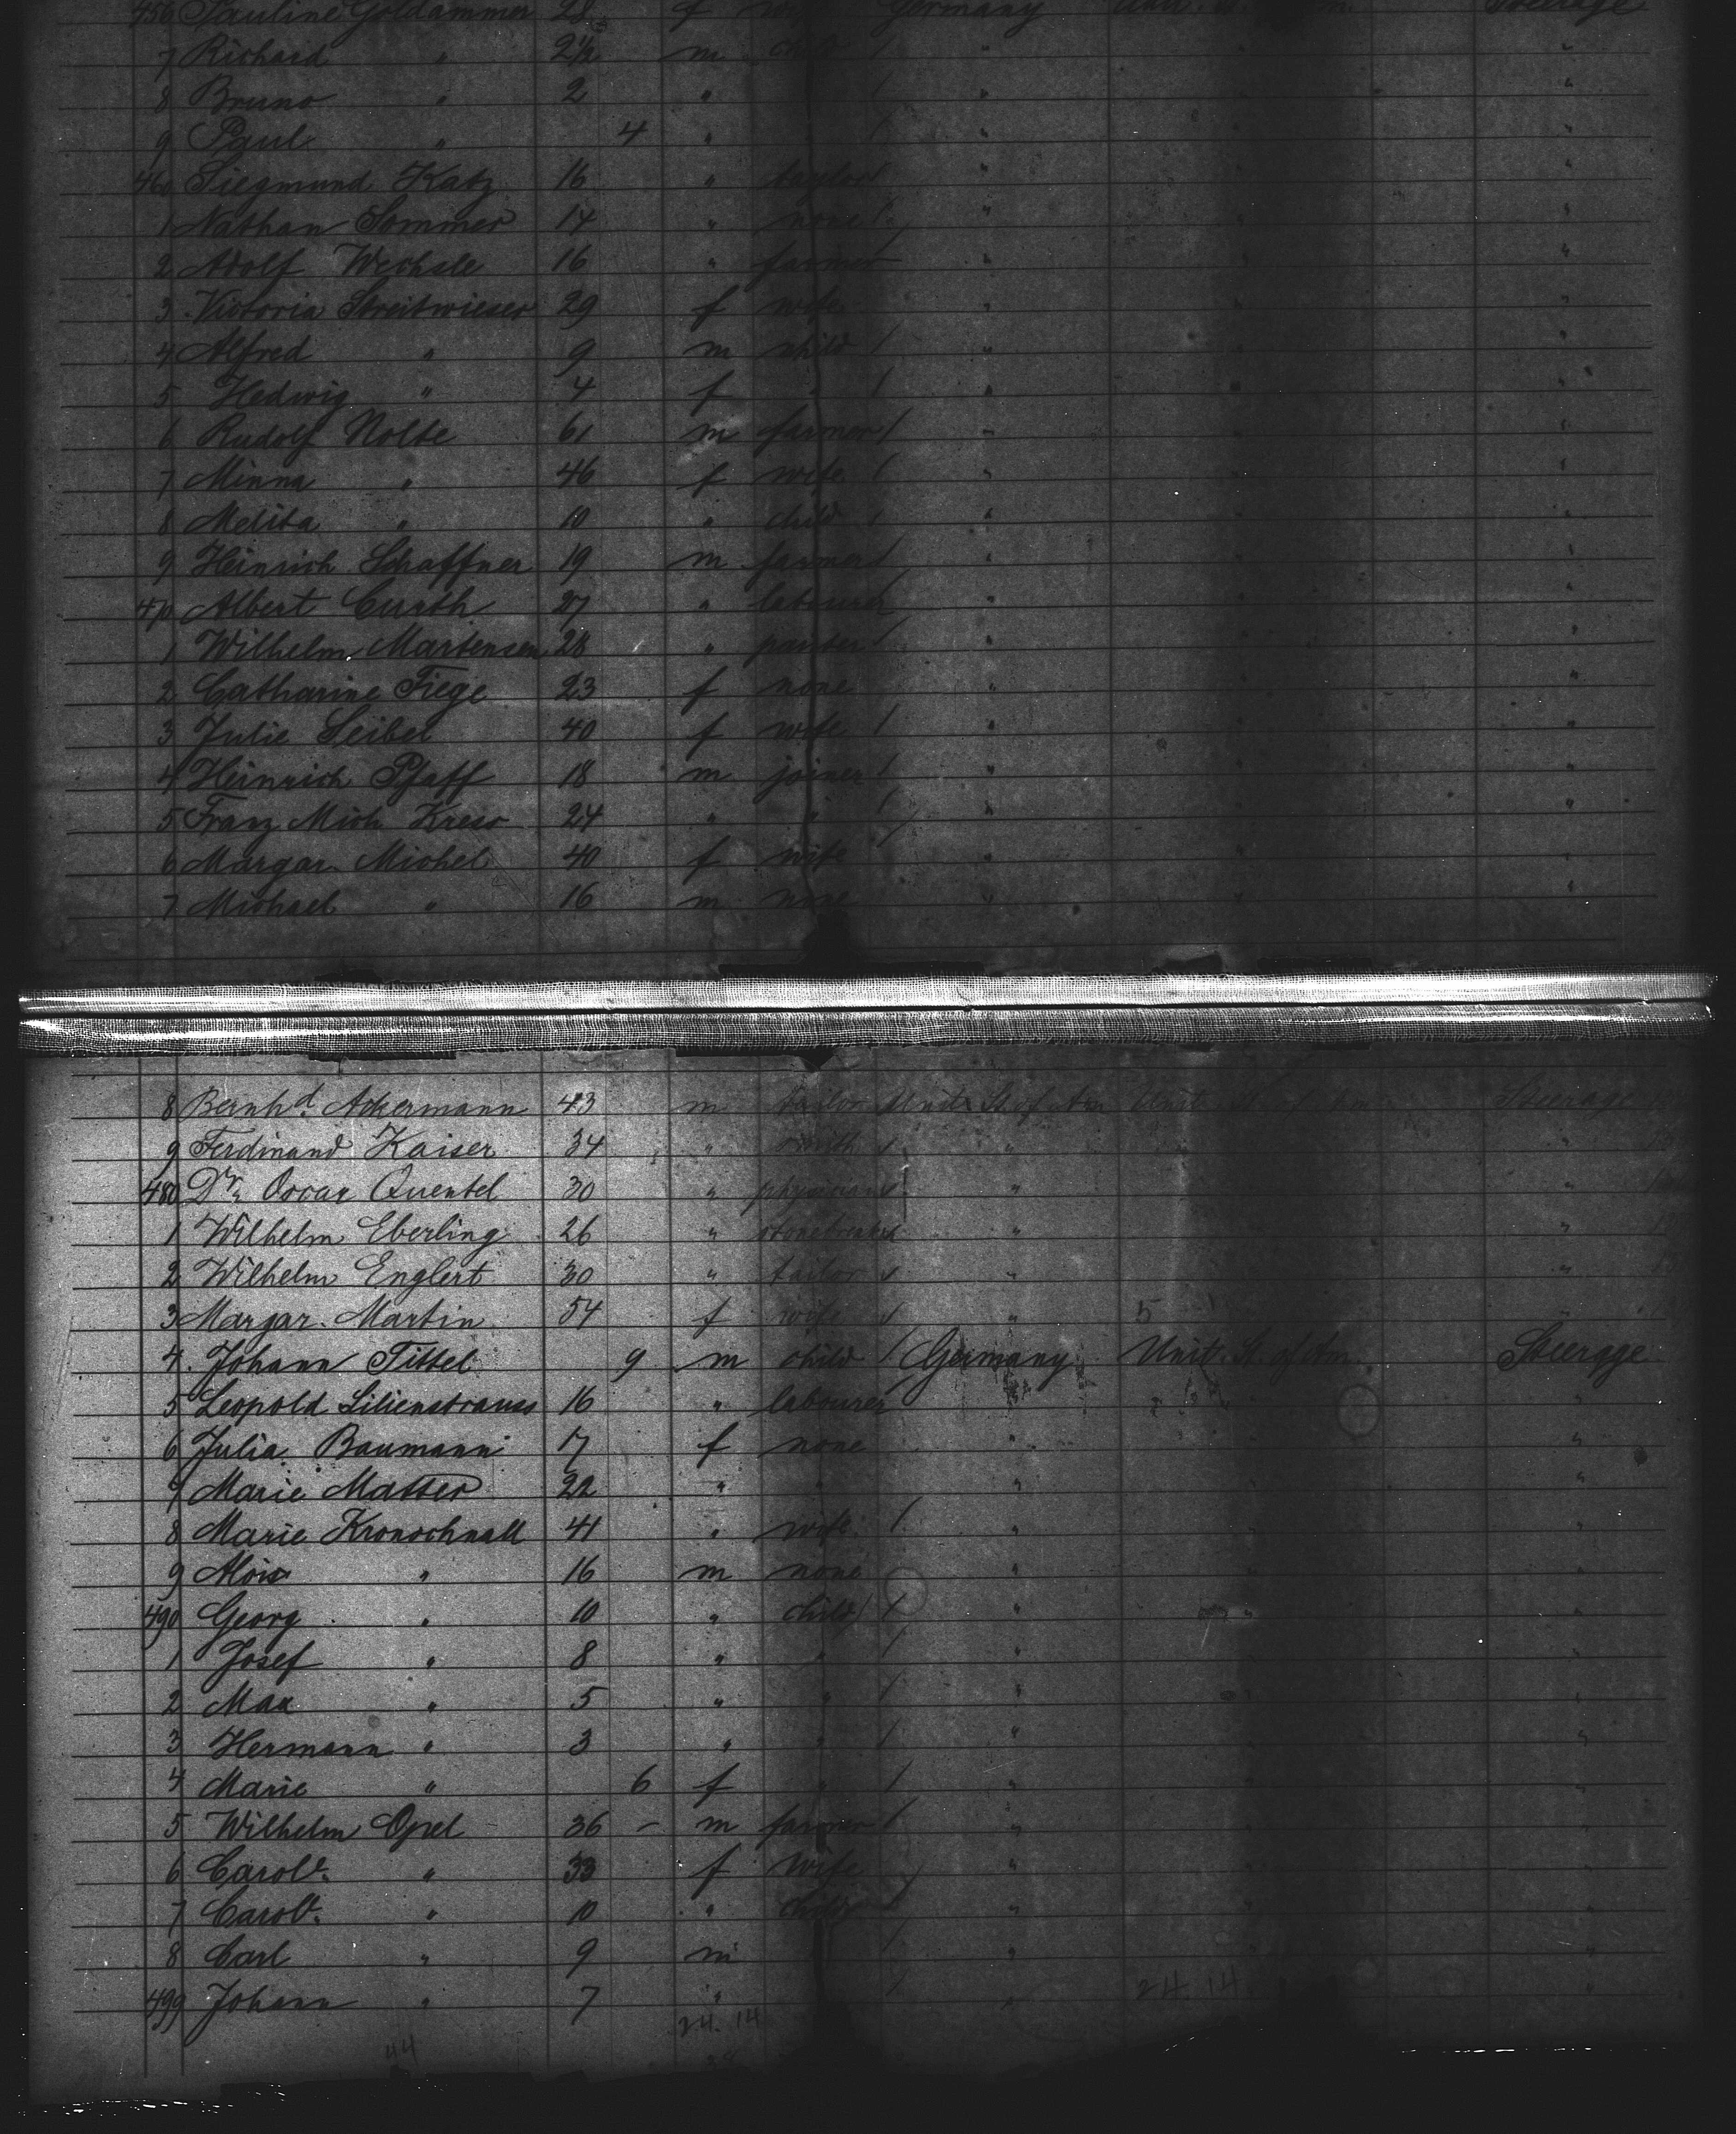 456 Pauline Goldammer 28 f wife Germany Unit. St. Steerage
7 Richard " 2½ m child "
8 Bruno " 2 " "
9 Paul " 4 " "
460 Siegmund Katz 16 " taylor "
1 Nathan Sommer 14 " none "
2 Adolf Wechsle 16 " farmer "
3 Victoria Streitwieser 29 f wife "
4 Alfred " 9 m child "
5 Hedwig " 4 f " "
6 Rudolf Nolte 61 m farmer "
7 Minna " 46 f wife "
8 Melita " 10 " child "
9 Heinrich Schaffner 19 m farmer "
470 Albert Curth 27 " labourer "
1 Wilhelm Martensen 28 " painter "
2 Catharine Fiege 23 f none "
3 Julie Seibel 40 f wife "
4 Heinrich Pfaff 18 m joiner "
5 Franz Mich Kress 24 " " "
6 Margar. Michel 40 f wife "
7 Michael " 16 m none "
8 Bernhd. Ackermann 43 m tailor Unit. St. of Am Unit. St. of Am Steerage
9 Ferdinand Kaiser 34 " smith " "
480 Dr. Oscar Quentel 30 " physician " "
1 Wilhelm Eberling 26 " " "
2 Wilhelm Englert 30 " tailor " "
3 Margar. Martin 54 f wife " 5 "
4 Johann Tittel 9 m child Germany Unit. St. of Am Steerage
5 Leopold Lilienstrauss 16 " labourer "
6 Julia Baumann 17 f none " "
7 Marie Matter 22 " " " "
8 Marie Kronschnall 41 " wife " "
9 Alois " 16 m none " "
490 Georg " 10 " child " " "
1 Josef " 8 " " " "
2 Max " 5 " " " "
3 Hermann " 3 " " " "
4 Marie " 6 f " " "
5 Wilhelm Opel 36 – m farmer " "
6 Carole. " 33 f wife " "
7 Carole. " 10 " child " "
8 Carl " 9 m " "
499 Johann " 7 " " "
24.14
24. 14
44